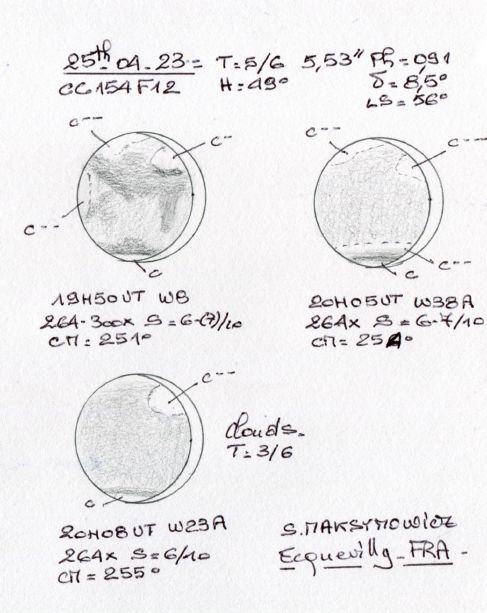 25th 04-23= T=5/6 5,53" Ph=091
CC154F12 H=49° δ=8,5°
LS=56°
C-- C- C-- C--
C--
C C C--
19H50UT W8
264-300x S=6-(7)/10
CM=251°
20H05UT W38A
264x S=6-7/10
CM=254°
C--
Clouds-
T=3/6
C
20H08UT W23A
264x S=6/10
CM=255°
S.MAKSYMOWICZ
Ecquevilly-FRA-